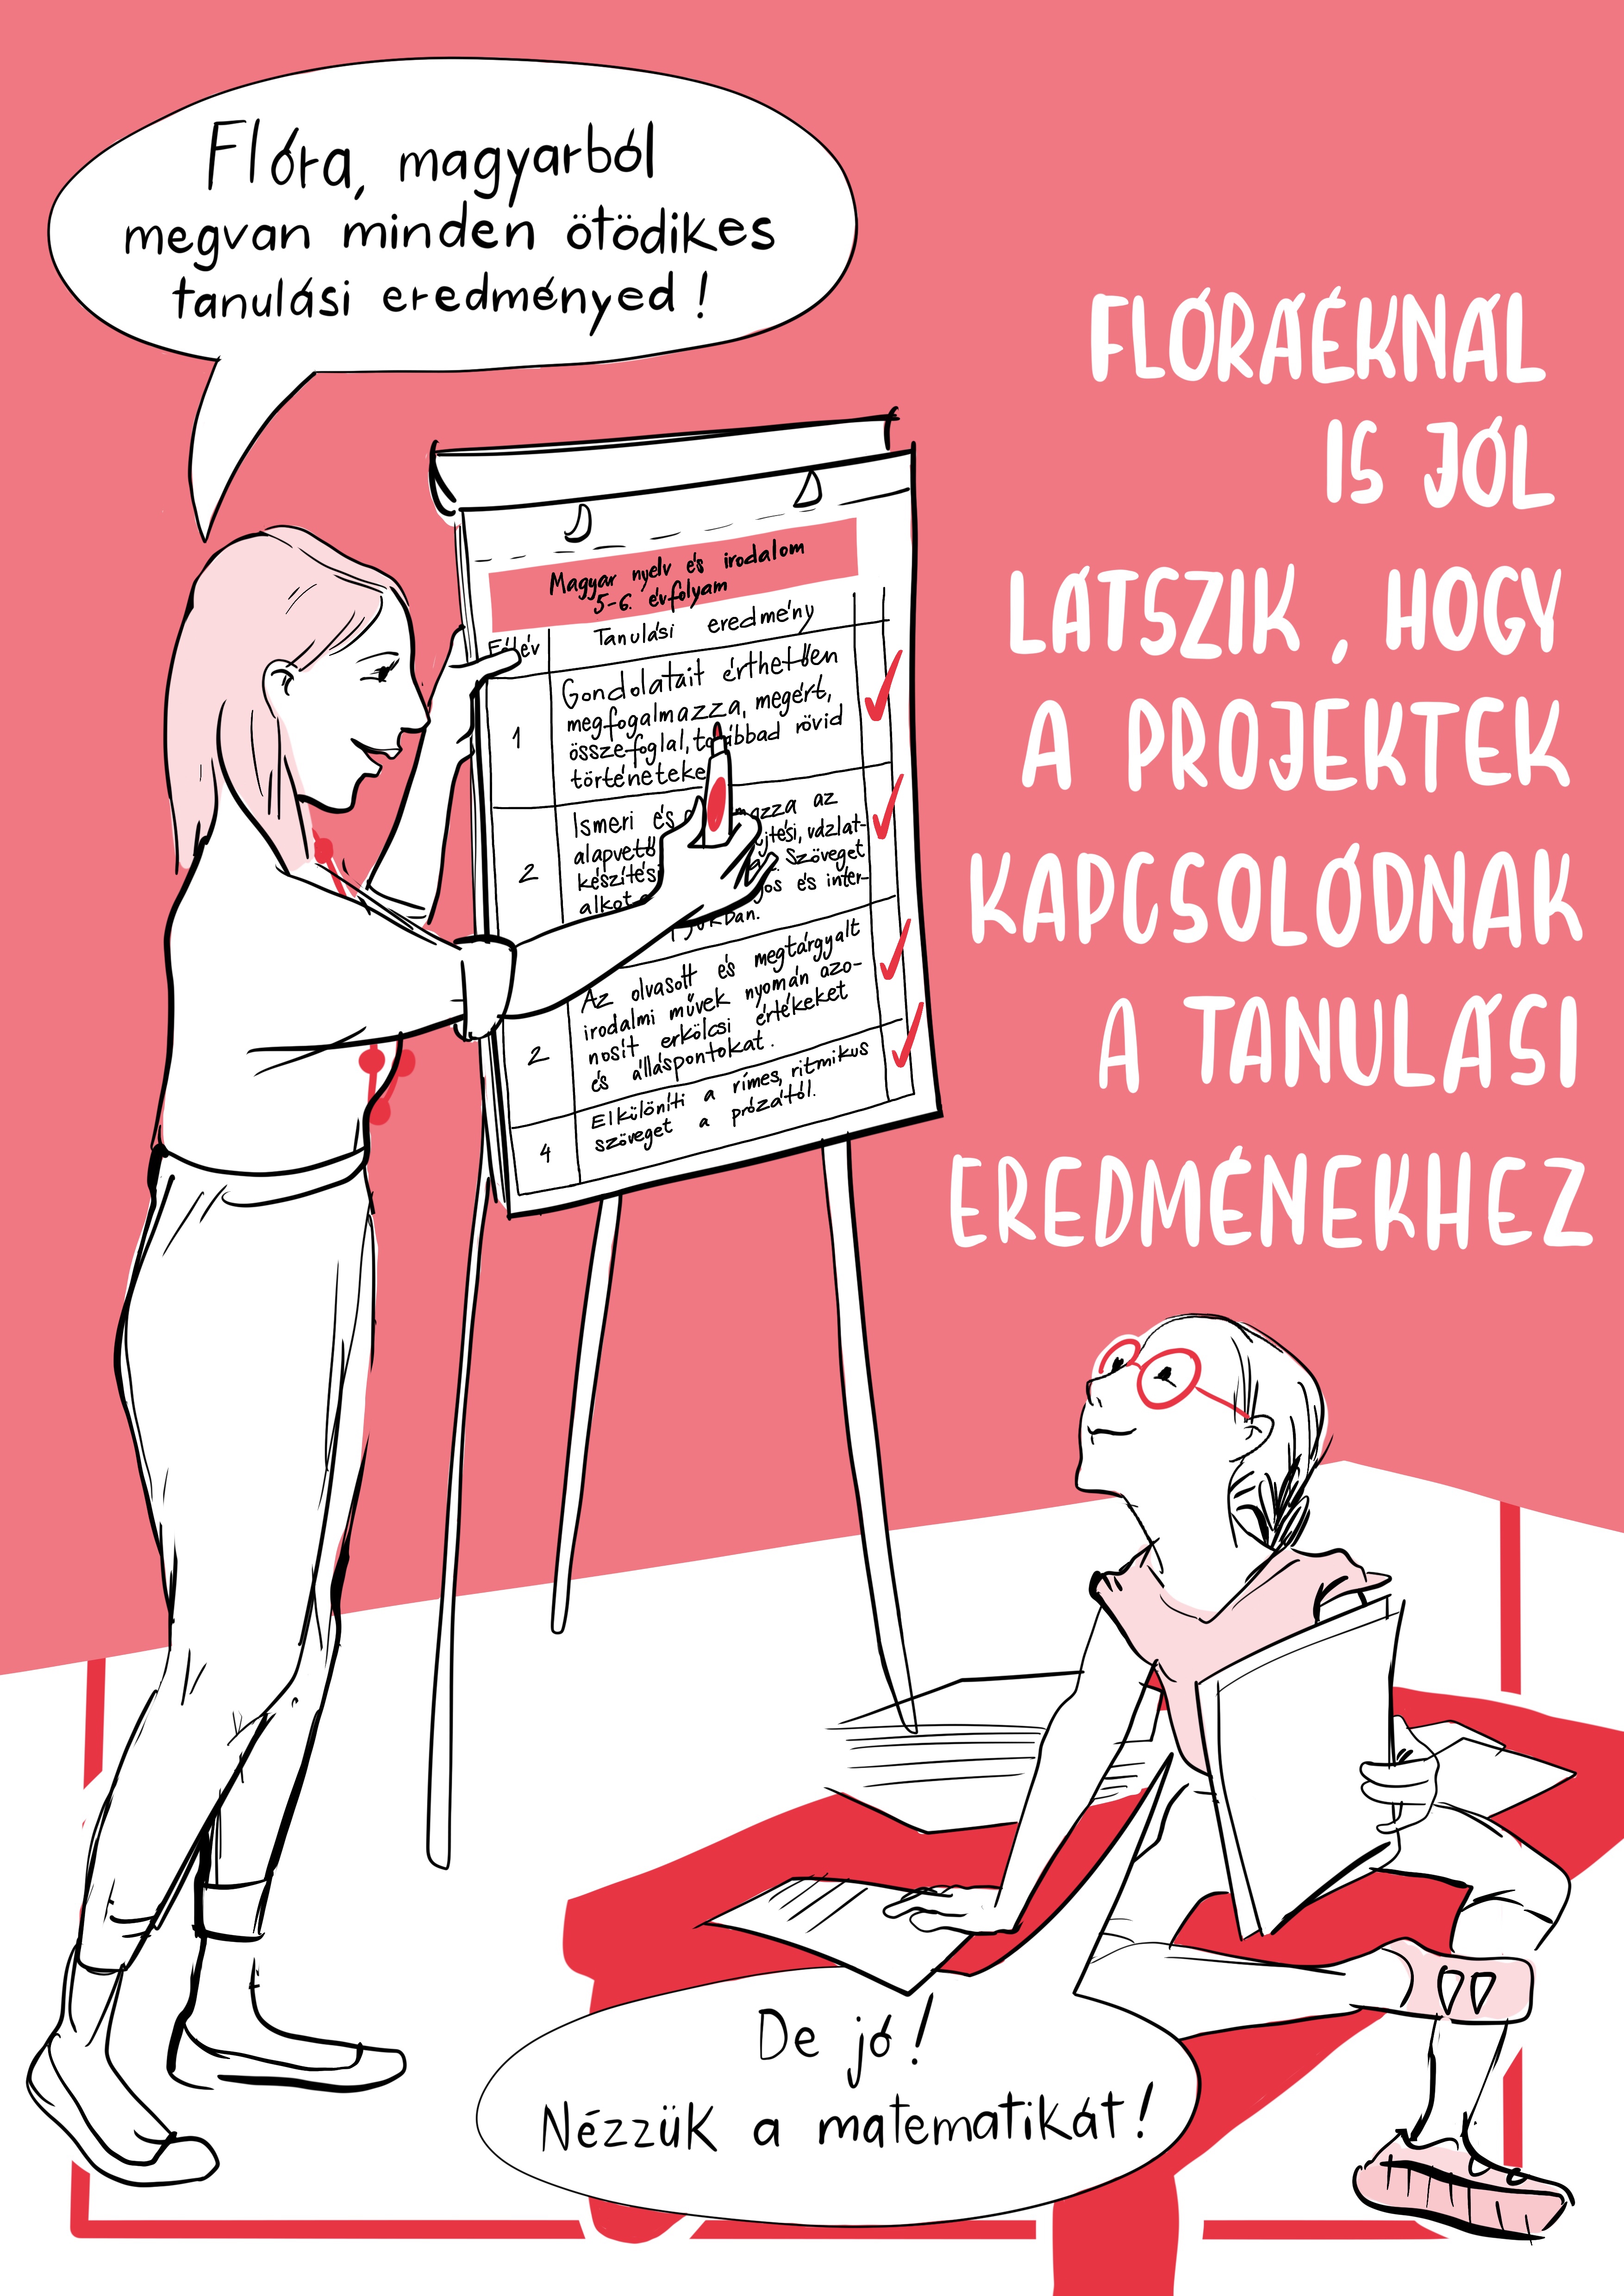 Flóra, magyarból
megvan minden ötödikes
tanulási eredményed!
FLÓRÁÉKNÁL
IS JÓL
LÁTSZIK, HOGY
A PROJEKTEK
KAPCSOLÓDNAK
A TANULÁSI
EREDMÉNEKHEZ
Magyar nyelv és irodalom
5-6. évfolyam
Félév Tanulási eredmény
1
Gondolatait érthetően
megfogalmazza, megért,
összefoglal, továbbad rövid
történeteke
2
Ismeri és az
alapvető vázlat-
készítési Szöveget
alkot és inter-
2
Az olvasott és megtárgyalt
irodalmi művek nyomán azo-
nosít erkölcsi értékeket
és álláspontokat.
4
Elkülöníti a rímes, ritmikus
szöveget a prózától.
De jó!
Nézzük a matematikát!